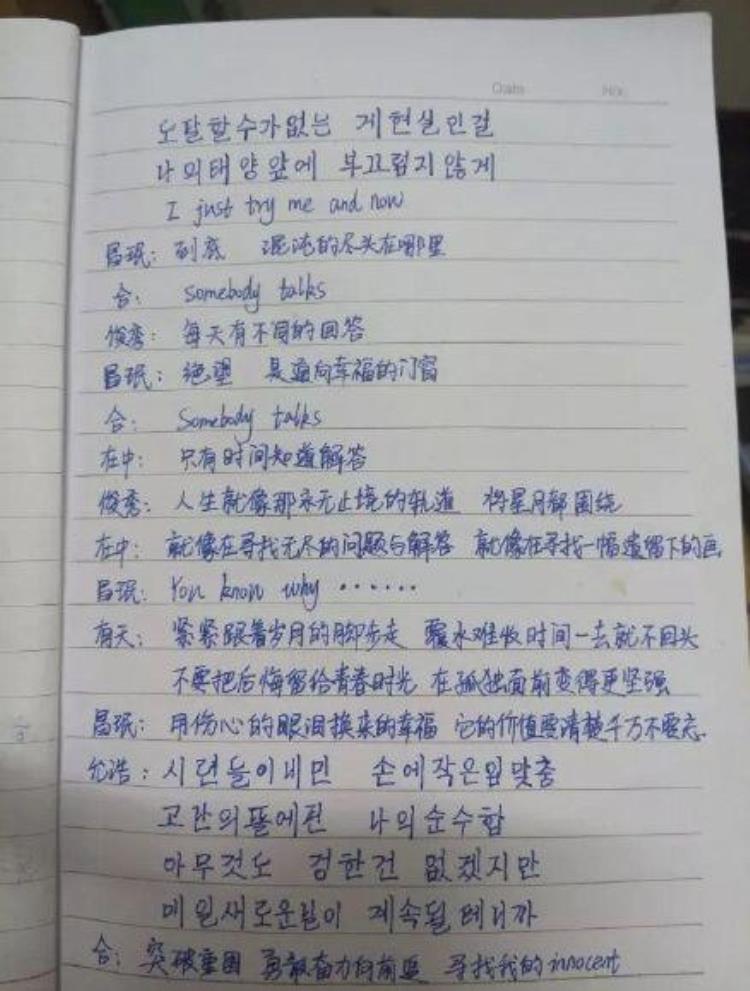 Date No.
오달할수가없는 게현실인걸
나의태양앞에 부끄럽지않게
I just try me and now
昌珉：到底 混沌的尽头在哪里
合： somebody talks
俊秀：每天有不同的回答
昌珉：绝望 是通向幸福的门窗
合： Somebody talks
在中： 只有时间知道解答
俊秀： 人生就像那永无止境的轨道 将星月都围绕
在中： 就像在寻找无尽的问题与解答 就像在寻找一幅遗留下的画
昌珉： You know why ……
有天： 紧紧跟着岁月的脚步走 覆水难收时间一去就不回头
不要把后悔留给青春时光 在孤独面前变得更坚强
昌珉： 用伤心的眼泪换来的幸福 它的价值要清楚千万不要忘
允浩：시련들이내민 손에작은입맞춤
고난의뜰에핀 나의순수함
아무것도 겁한건 없겠지만
매일새로운날이 계속될테니까
合：突破重围 勇敢奋力向前追 寻找我的innocent